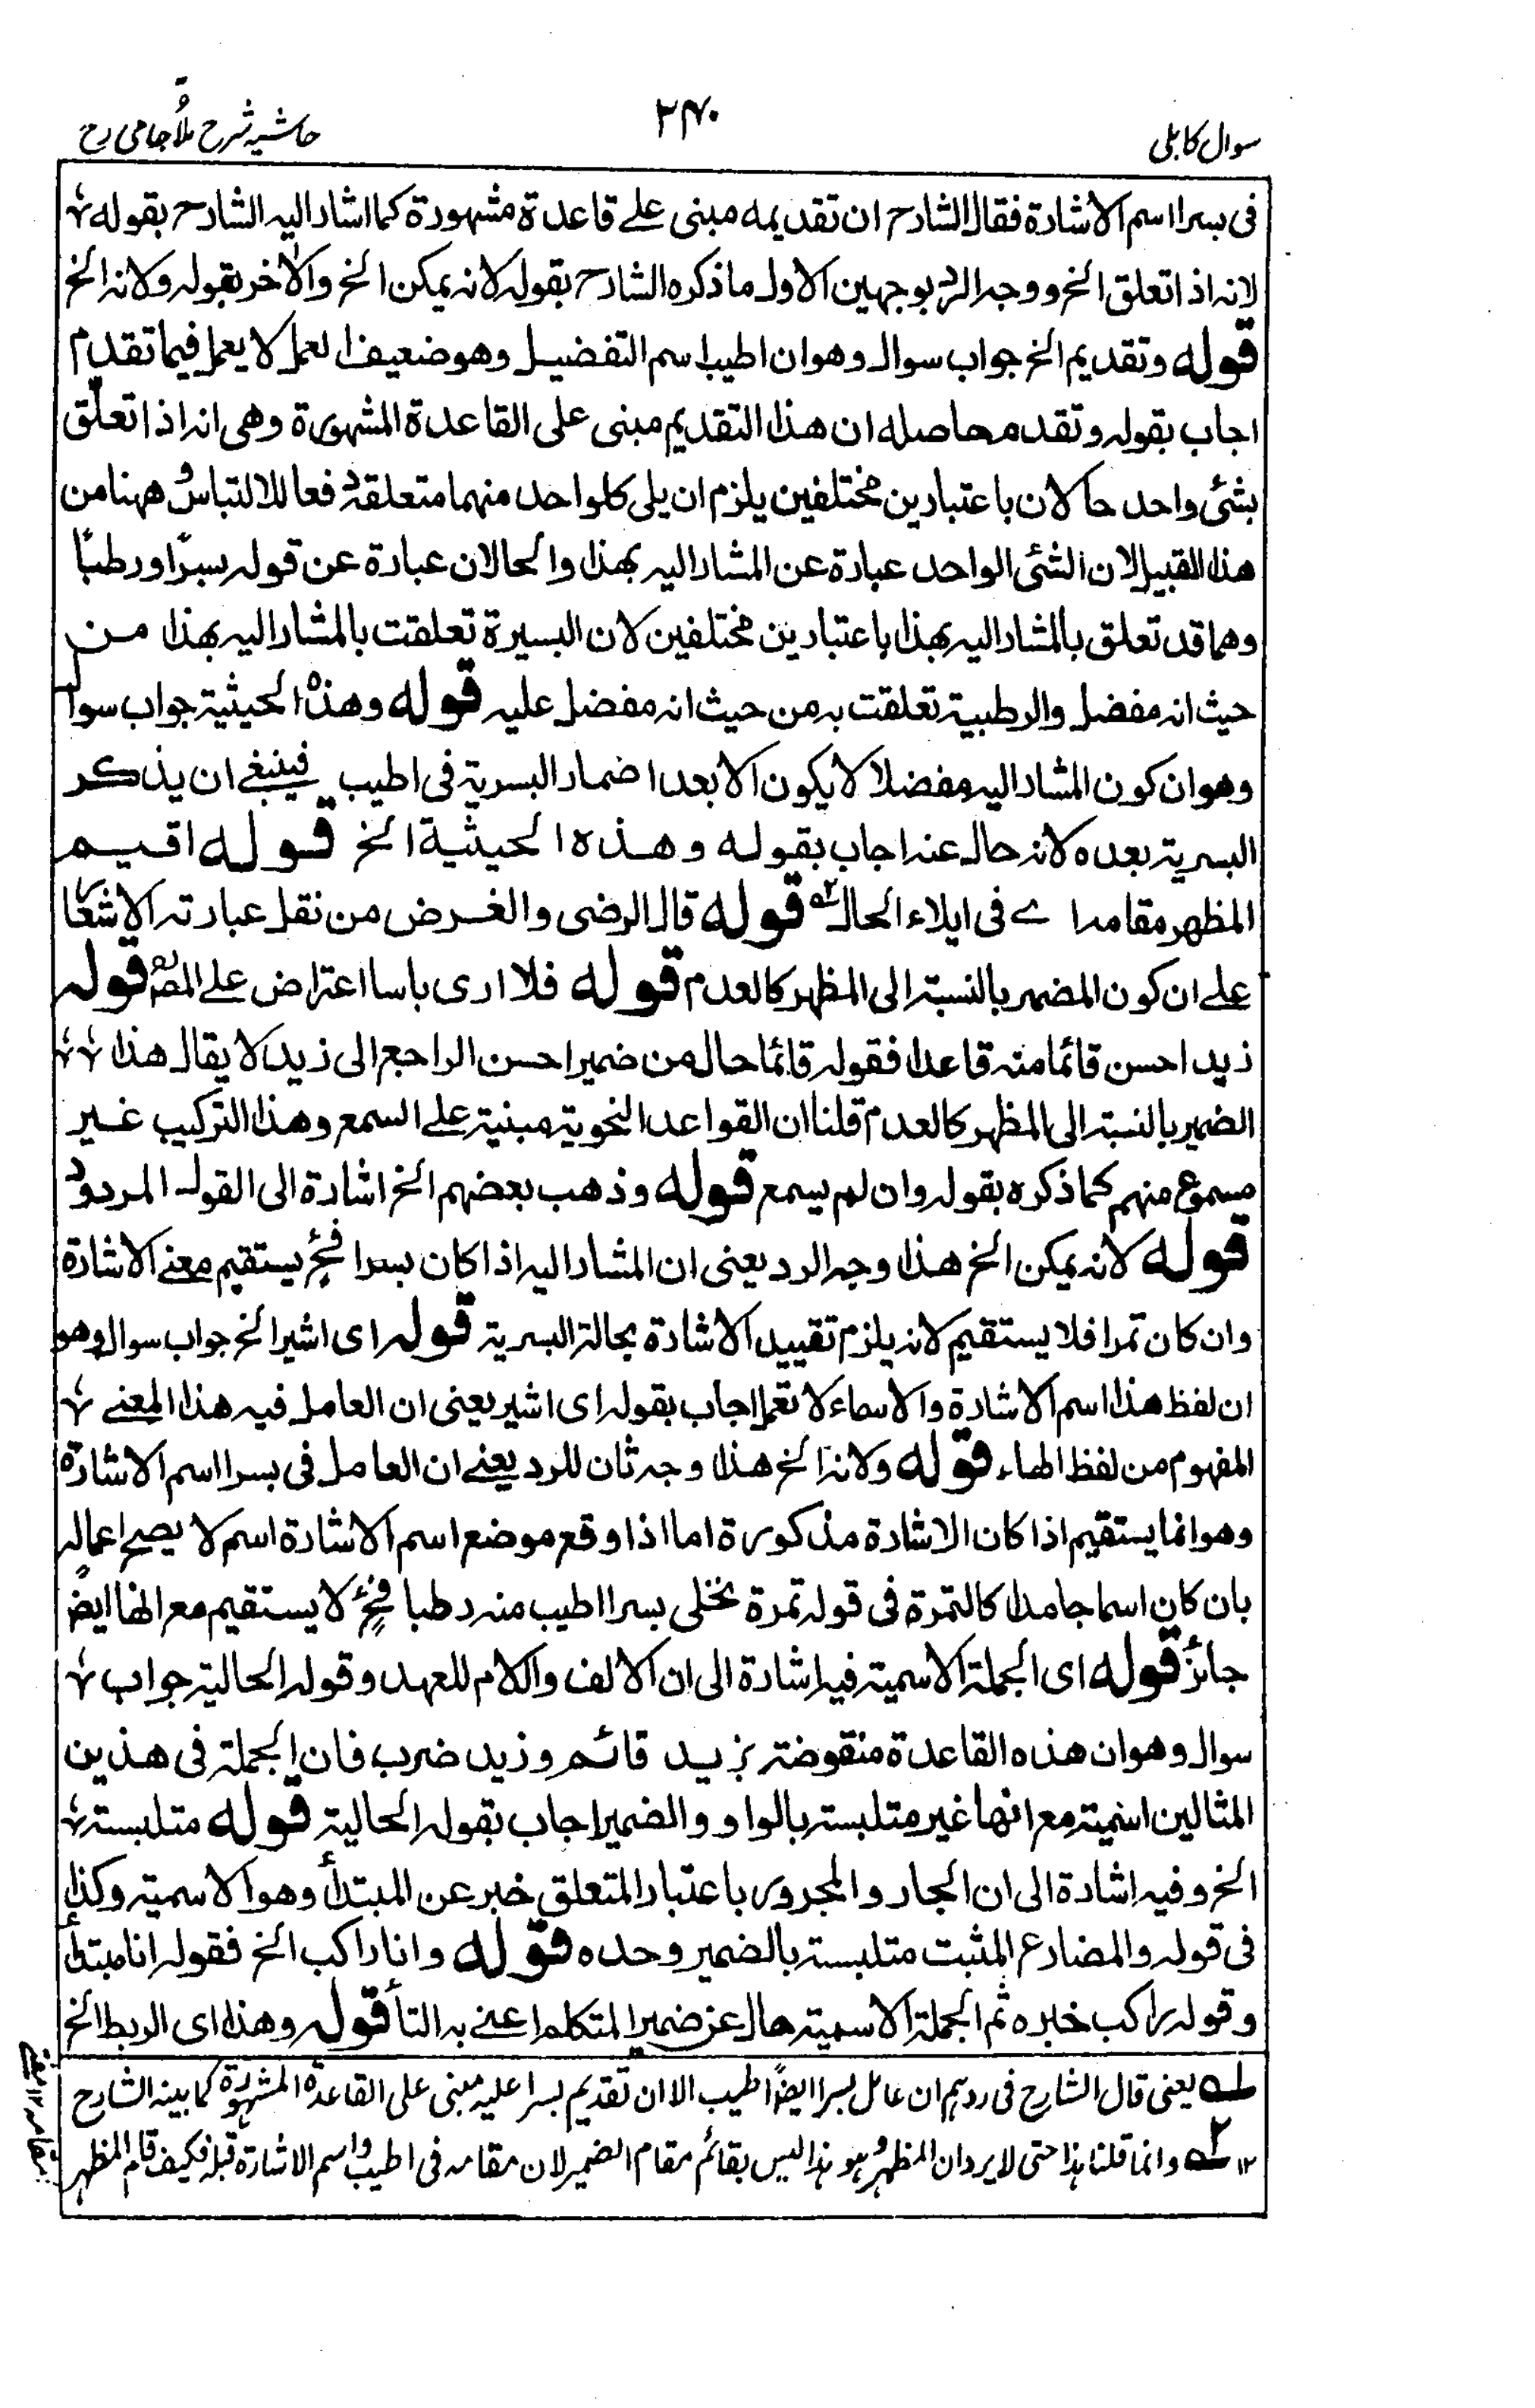 سوال کابلی
۲۴۰
حاشیہ شرح ملا جامی رح
فی بسرا اسم الاشارة فقال الشارح ان تقدیمه مبنی علے قاعدة مشهورة کما اشار الیه الشارح بقوله
لانه اذا تعلق الخ ووجه الرد بوجهین الاول ما ذکره الشارح بقوله لانه یمکن الخ والاٰخر بقوله ولانه الخ
قوله وتقدیم الخ جواب سوال وهو ان اطیب اسم التفضیل وهو ضعیف العمل لا یعمل فیما تقدم
اجاب بقوله وتقدم حاصله ان هذا التقدیم مبنی علی القاعدة المشهورة وهی انه اذا تعلّق
بشئ واحد حالان باعتبارین مختلفین یلزم ان یلی کلواحد منهما متعلقه دفعا للالتباس و ههنا من
هذا القبیل لان الشئ الواحد عبارة عن المشار الیه بهذا والحالان عبارة عن قوله بسرًا ورطبًا
وهما قد تعلق بالمشار الیه بهذا باعتبارین مختلفین لان البسیرة تعلقت بالمشار الیه بهذا من
حیث انه مفضل والرطبیة تعلقت به من حیث انه مفضل علیه قوله وهذه الحیثیة جواب سوال
وهو ان کون المشار الیه مفضلا لا یکون الا بعد اضمار البسریة فی اطیب فینبغے ان یذکر
البسریة بعده لانه حال عنه اجاب بقوله وهذه الحیثیة الخ قوله اقیم
المظهر مقامه اے فی ایلاء الحال ۲ قوله قال الرضی والغرض من نقل عبارته الاشعار
علے ان کون المضمر بالنسبة الی المظهر کالعدم قوله فلا اری باسا اعتراض علے المص قوله
زید احسن قائما منه قاعدا فقوله قائما حال من ضمیر احسن الراجع الی زید لا یقال هذا
الضمیر بالنسبة الی المظهر کالعدم قلنا ان القواعد النحویة مبنیة علے السمع وهذا الترکیب غیر
مسموع منهم کما ذکره بقوله وان لم یسمع قوله وذهب بعضهم الخ اشارة الی القول المردود
قوله لانه یمکن الخ هذا وجه الرد یعنی ان المشار الیه اذا کان بسرا فح یستقیم معنے الاشارة
وان کان تمرا فلا یستقیم لانه یلزم تقیید الاشارة بحالة البسریة قوله ای اشیر الخ جواب سوال وهو
ان لفظ هذا اسم الاشارة والاسماء لا تعمل اجاب بقوله ای اشیر یعنی ان العامل فیه هذا المعنے
المفهوم من لفظ الهاء قوله ولانه الخ هذا وجه ثان للرد یعنے ان العامل فی بسرا اسم الاشارة
وهو انما یستقیم اذا کان الاشارة مذکورة اما اذا وقع موضع اسم الاشارة اسم لا یصح اعماله
بان کان اسما جامدا کالتمرة فی قوله تمرة نخلی بسرا اطیب منه رطبا فح لا یستقیم مع انها ایضًا
جائز قوله ای الجملة الاسمیة فیه اشارة الی ان الالف واللام للعهد وقوله الحالیة جواب
سوال وهو ان هذه القاعدة منقوضة بزید قائم وزید ضرب فان الجملة فی هذین
المثالین اسمیة مع انها غیر متلبسة بالواو والضمیر اجاب بقوله الحالیة قوله متلبسة
الخ وفیه اشارة الی ان الجار والمجرور باعتبار المتعلق خبر عن المبتدأ وهو الاسمیة وکذا
فی قوله والمضارع المثبت متلبسة بالضمیر وحده قوله وانا راکب الخ فقوله انا مبتدأ
وقوله راکب خبره ثم الجملة الاسمیة حال عن ضمیر المتکلم اعنے به التأ قوله وهذا ای الربط الخ
۱ یعنی قال الشارح فی ردہم ان عامل بسرا ایضًا اطیب الا ان تقدیم بسرا علیه مبنی علی القاعدة المشهورة کما بینه الشارح
۱۲ ۲ وانما قلنا هذا حتی لا یرد ان المظهر وهو هذا لیس بقائم مقام الضمیر لان مقامه فی اطیب واسم الاشارة قبله فکیف قام المظهر